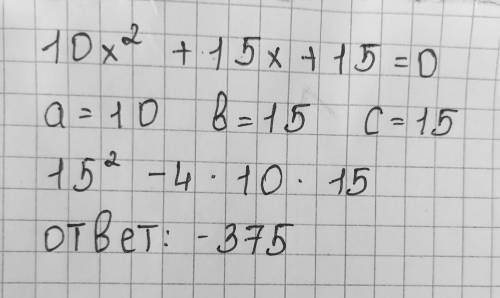 10x² + 15x + 15 = 0
a = 10 в = 15 c = 15
15² - 4 · 10 · 15
ответ: - 375